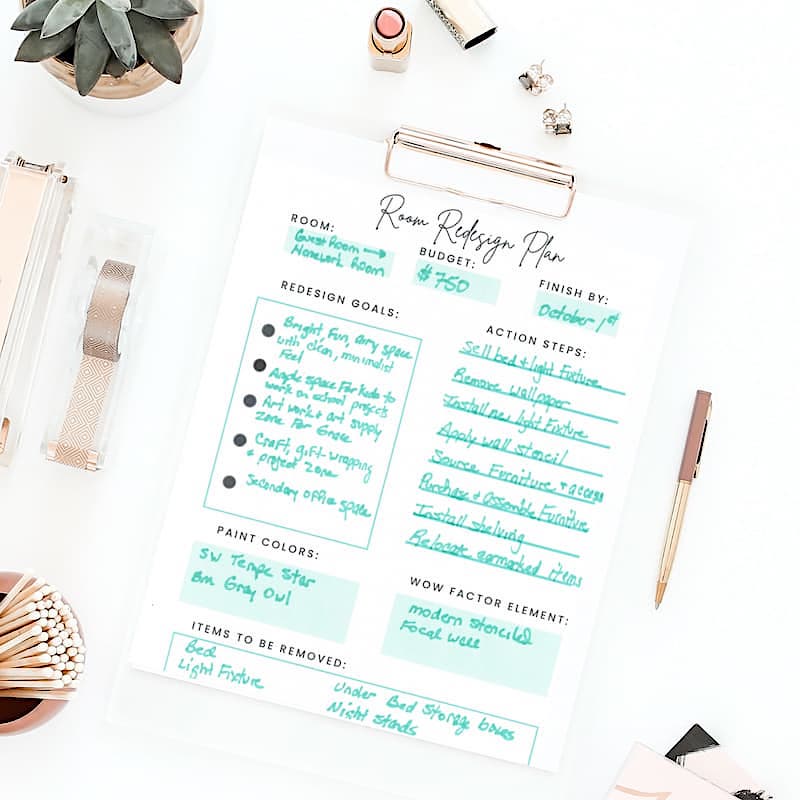 Room Redesign Plan
ROOM:
Guest Room →
Homework Room
BUDGET:
$750
FINISH BY:
October 1st
REDESIGN GOALS:
Bright, Fun, airy space
with clean, minimalist
Feel
Ample space For kids to
work on school projects
Art work + art supply
zone For Grace
Craft, gift-wrapping
+ project zone
Secondary office space
ACTION STEPS:
Sell bed + light Fixture
Remove wallpaper
Install new light Fixture
Apply wall stencil
Source Furniture + access
Purchase + Assemble Furniture
Install shelving
Relocate earmarked items
PAINT COLORS:
SW Tempe Star
Bm Gray Owl
WOW FACTOR ELEMENT:
modern stenciled
Focal wall
ITEMS TO BE REMOVED:
Bed
Light Fixture
Under Bed Storage boxes
Night stands